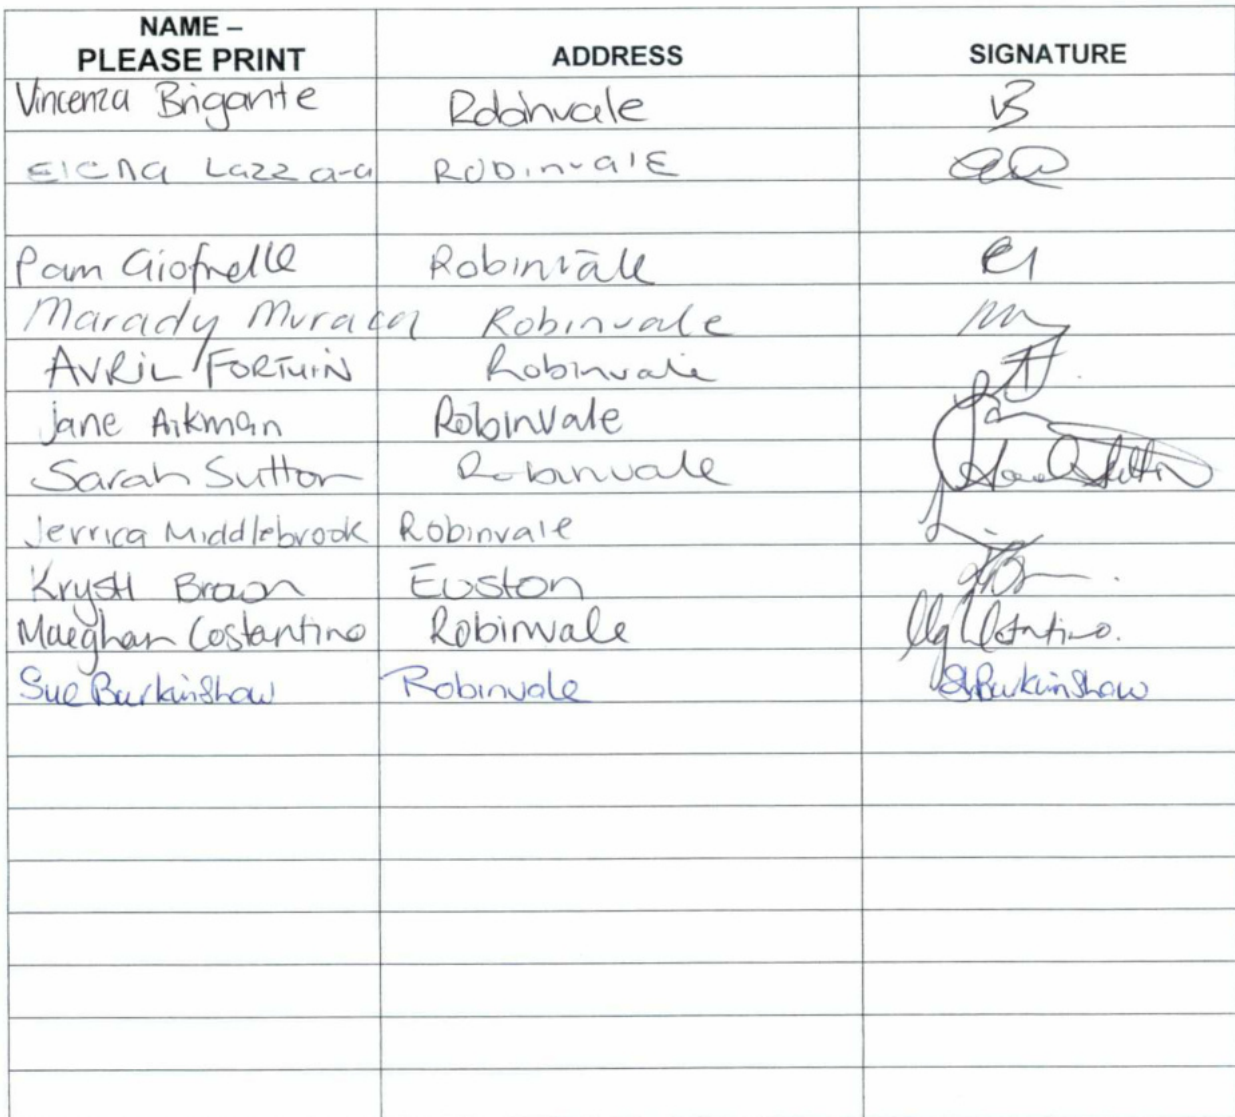 NAME –
PLEASE PRINT ADDRESS SIGNATURE
Vincenza Brigante Robinvale VB
Elena Lazzara Robinvale
Pam Giofrelle Robinvale
Marady Muraca Robinvale
AVRIL FORTUIN Robinvale
Jane Aikman Robinvale
Sarah Sutton Robinvale Sarah Sutton
Jerrica Middlebrook Robinvale
Krystl Braon Euston
Maeghan Costantino Robinvale
Sue Burkinshaw Robinvale SBurkinshaw